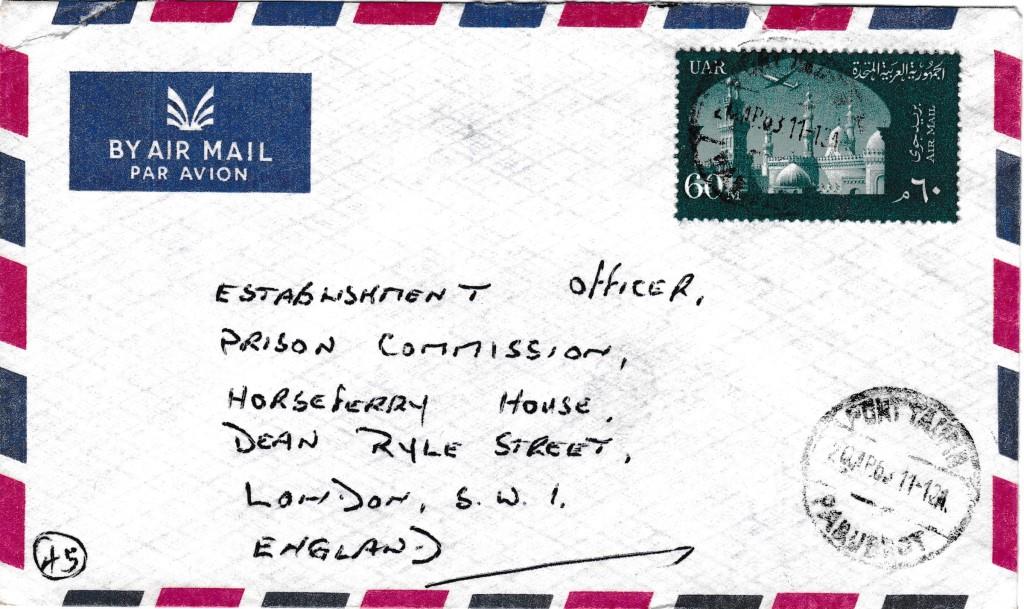 BY AIR MAIL
PAR AVION
UAR
الجمهورية العربية المتحدة
بريد جوى
AIR MAIL
60 M
٦٠ م
ESTABLISHMENT OFFICER,
PRISON COMMISSION,
HORSEFERRY HOUSE,
DEAN RYLE STREET,
LONDON, S.W.1.
ENGLAND
PORT TAUFIQ
AP63 11-12A.
PAQUEBOT
45